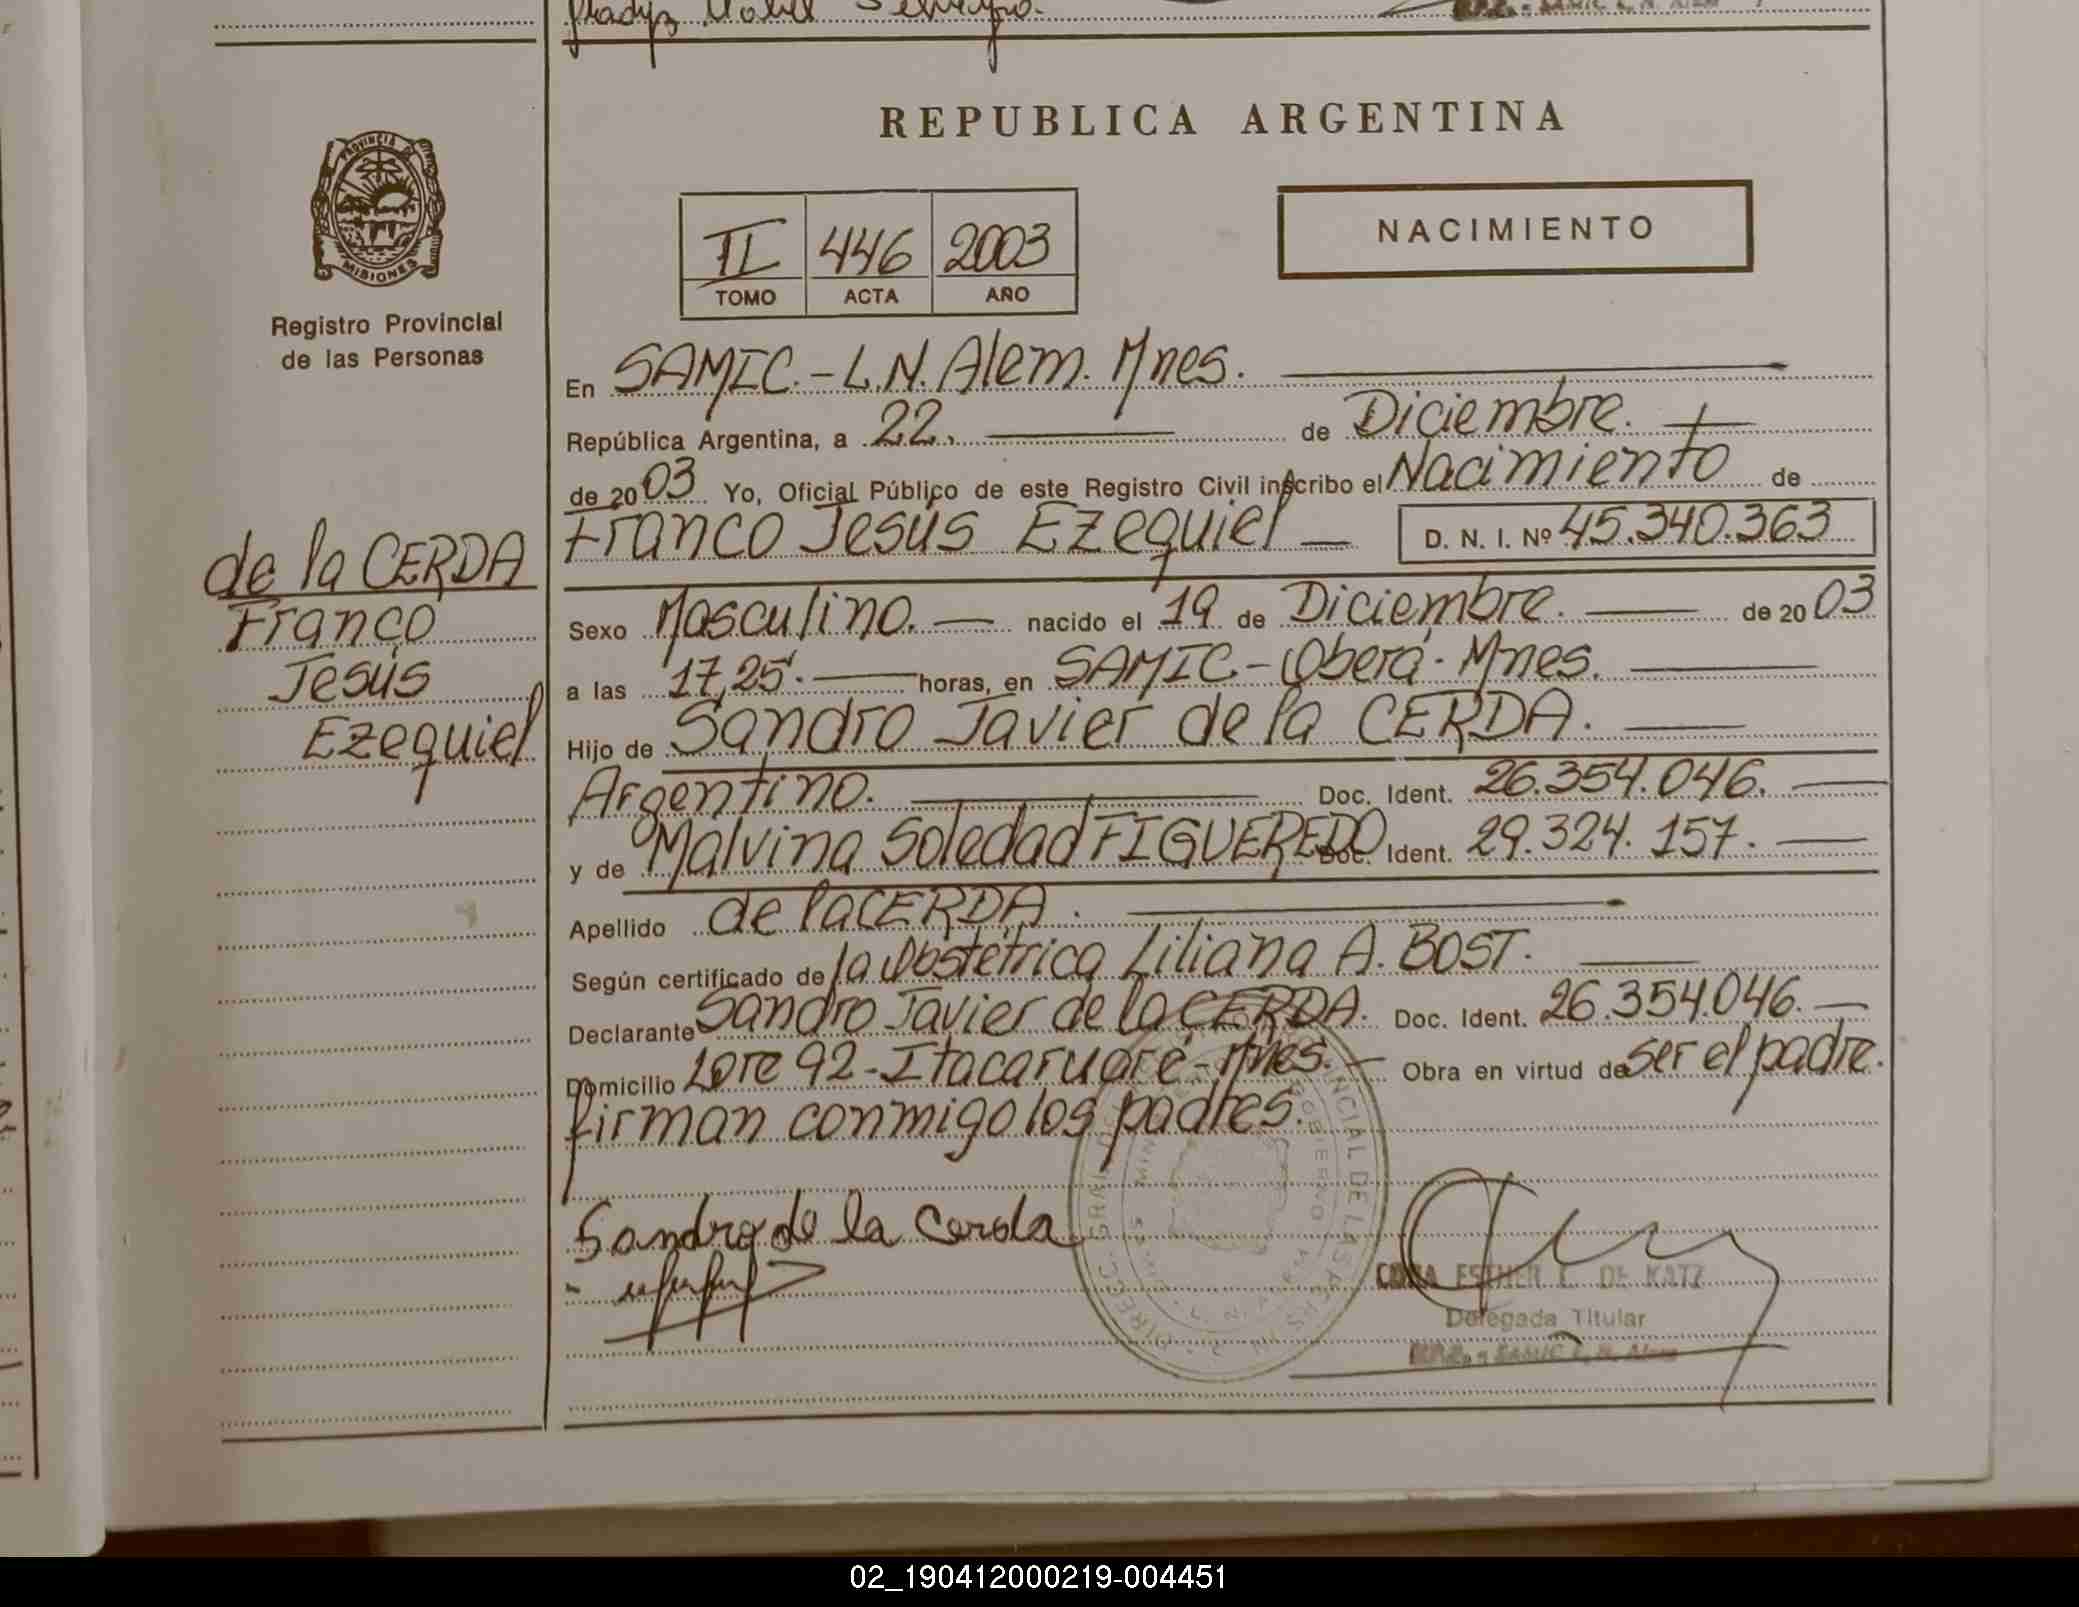 REPUBLICA ARGENTINA
PROVINCIA DE
MISIONES
Registro Provincial
de las Personas
NACIMIENTO
II 446 2003
TOMO ACTA AÑO
En SAMIC.-L.N. Alem. Mnes.
República Argentina, a 22. de Diciembre.
de 2003 Yo, Oficial Público de este Registro Civil inscribo el Nacimiento de
Franco Jesús Ezequiel D. N. I. Nº 45.340.363
de la CERDA
Franco
Jesús
Ezequiel
Sexo Masculino. nacido el 19 de Diciembre. de 2003
a las 17,25'. horas, en SAMIC-Oberá-Mnes.
Hijo de Sandro Javier de la CERDA.
Argentino. Doc. Ident. 26.354.046.
y de Malvina Soledad FIGUEREDO Doc. Ident. 29.324.157.
Apellido de la CERDA.
Según certificado de la Obstétrica Liliana A. BOST.
Declarante Sandro Javier de la CERDA. Doc. Ident. 26.354.046.
Domicilio Lote 92-Itacaruaré-Mnes. Obra en virtud de ser el padre.
firman conmigo los padres.
Sandro de la Cerda
ESTHER DE KATZ
Delegada Titular
02_190412000219-004451